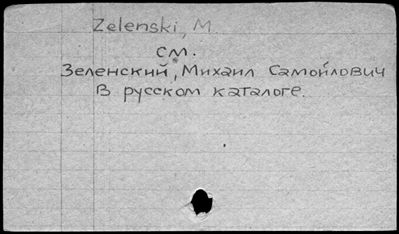 Zelenski, M
см.
Зеленский, Михаил Самойлович
в русском каталоге.